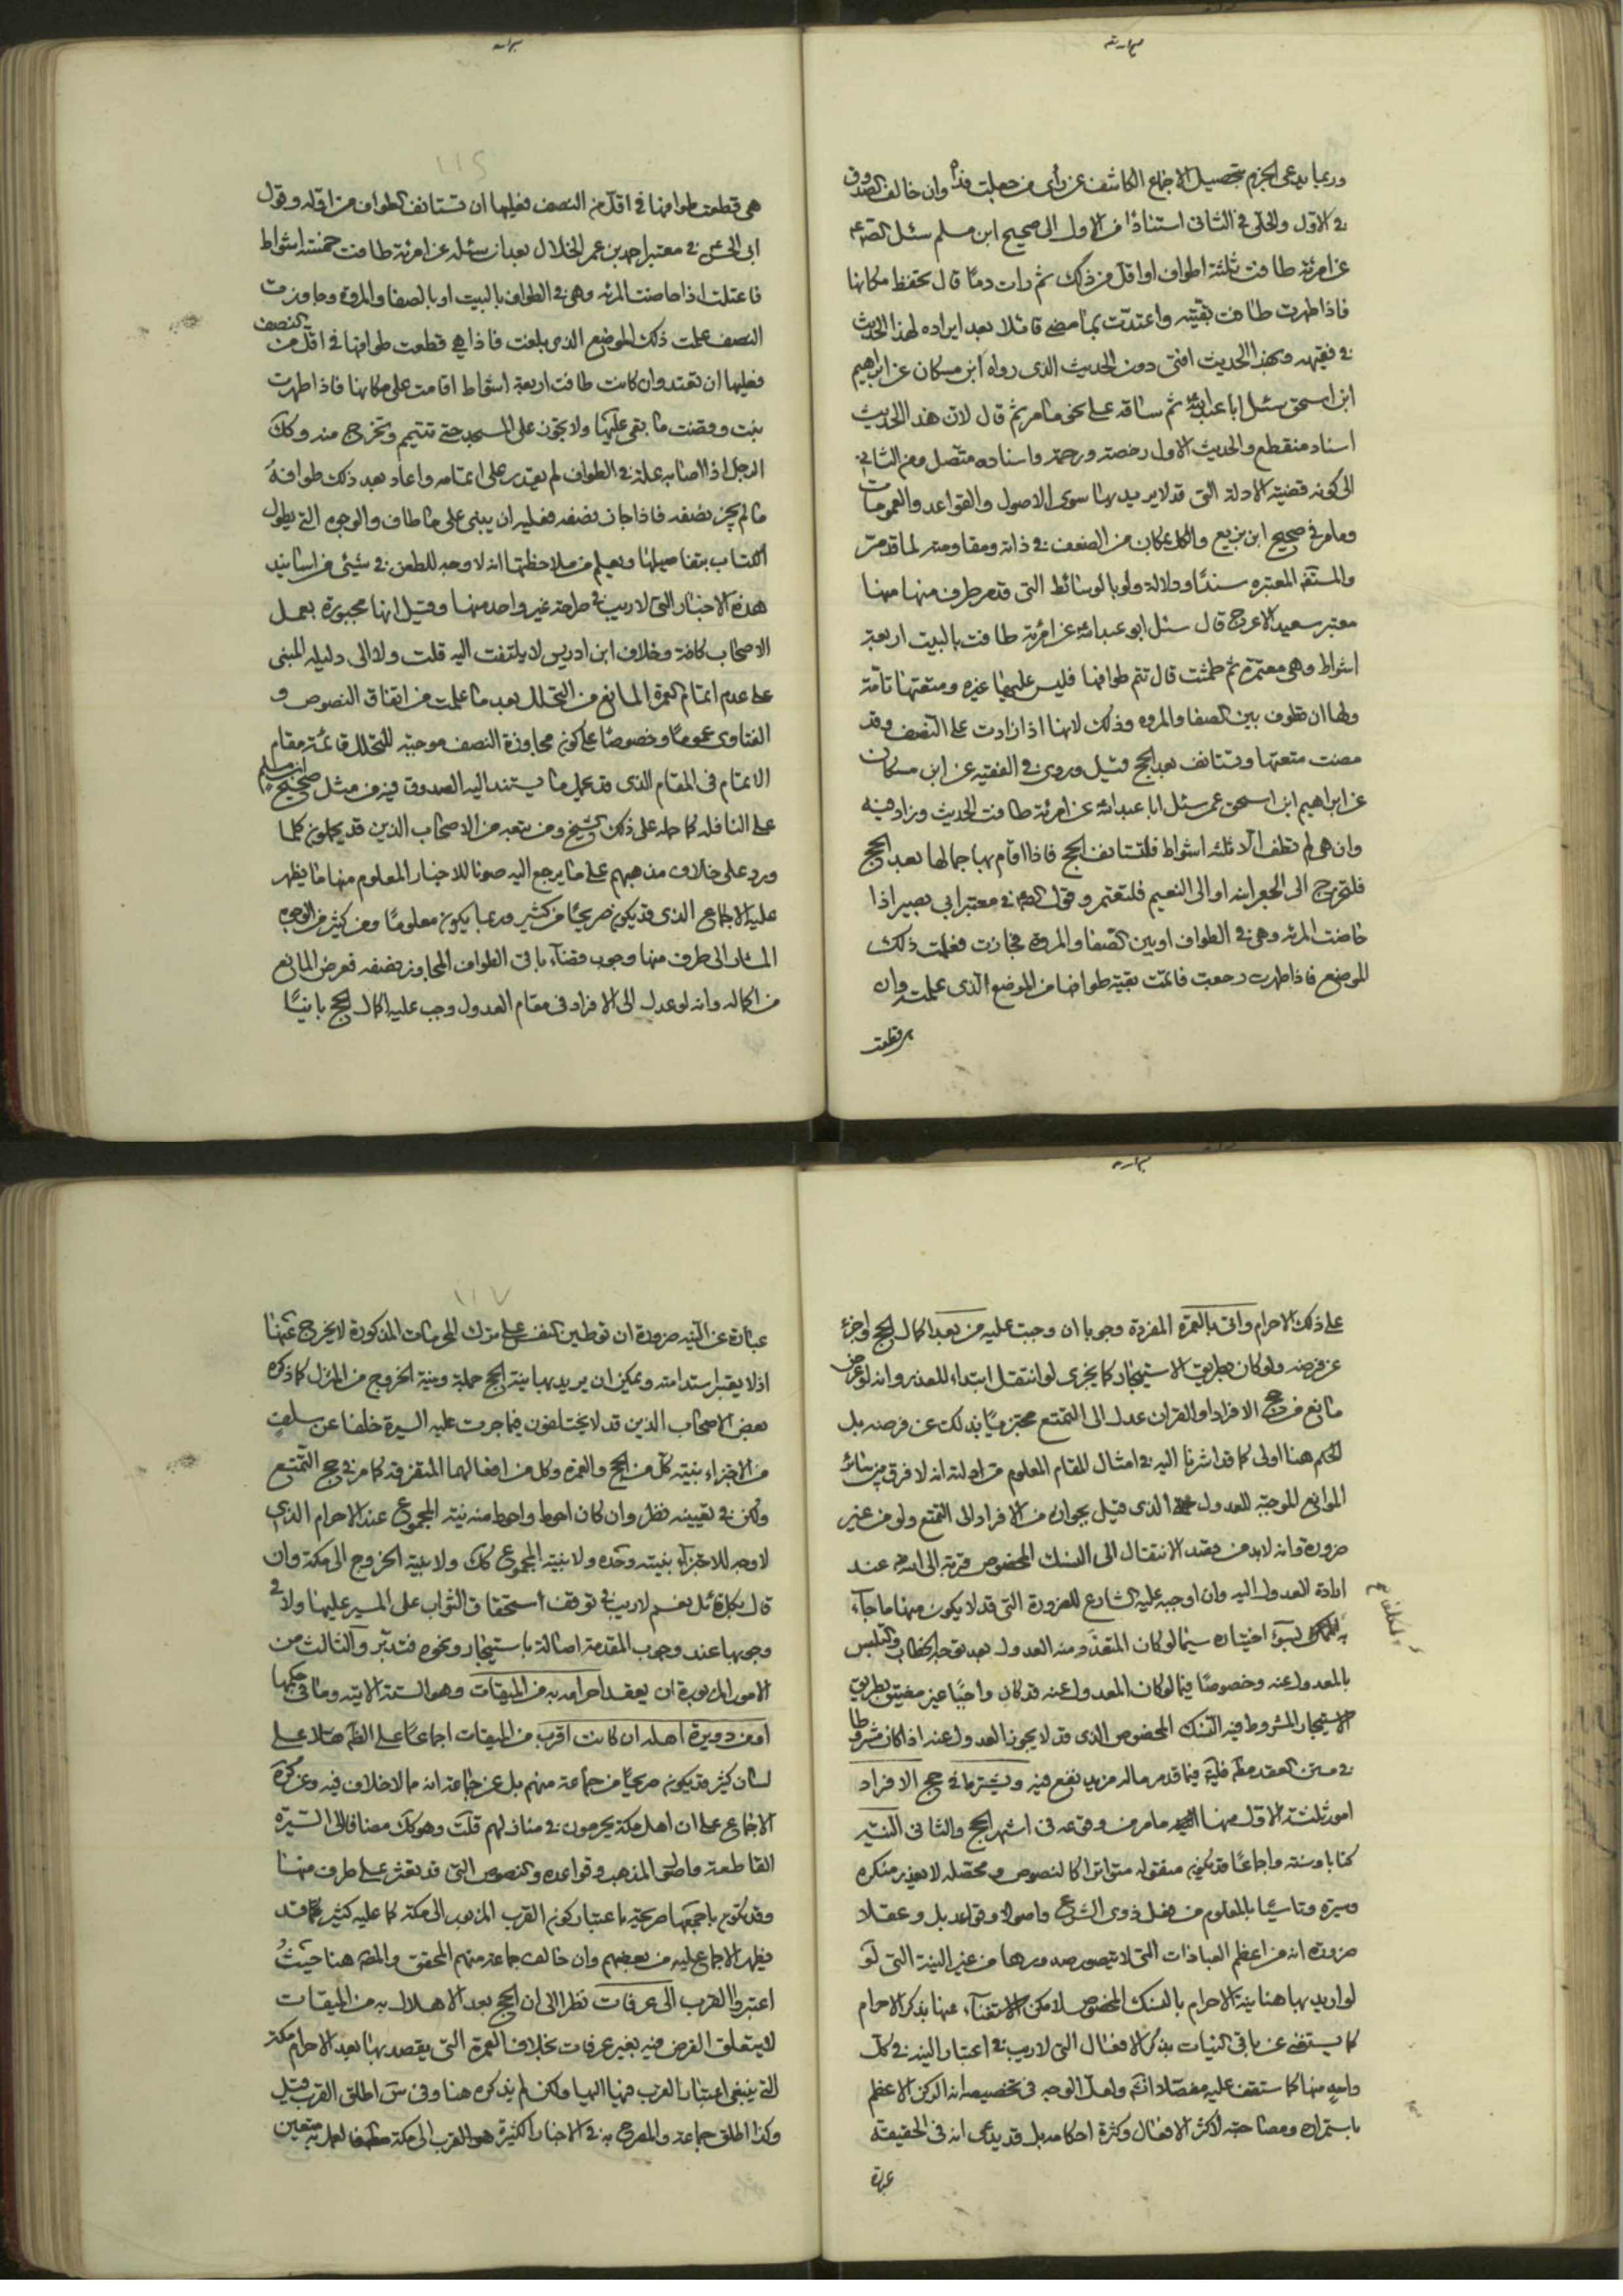 وربما يدعى الجزم بتحصيل الاجماع الكاشف عن رأى من جعلت فداه وان خالف الصدوق
فى الاول والحلى فى الثانى استنادًا فى الاول الى صحيح ابن مسلم سئل الصم
عن امرئة طافت ثلثة اطواف او اقل من ذلك ثم رات دمًا قال تحفظ مكانها
فاذا طهرت طافت بقيته واعتدت بما مضى قائلا بعد ايراده لهذا الحديث
فى فقيهه وبهذا الحديث افتى دون الحديث الذى رواه ابن مسكان عن ابراهيم
ابن اسحق سئل ابا عبدالله ثم ساقه على نحو ما مر ثم قال لان هذا الحديث
اسناده منقطع والحديث الاول رخصة ورحمة واسناده متصل وفى الثانى
الى كونه قضية الادلة التى قد لا يريد بها سوى الاصول والقواعد والعمومات
وما مر فى صحيح ابن بزيع والكل بمكان من الضعف فى ذاته ومقاومته لما قد مر
المعتبره سندًا ودلالة ولو بالوسائط التى قد مر طرف منها منها
معتبر سعيد الاعرج قال سئل ابو عبدالله عن امرئة طافت بالبيت اربعة
اشواط وهى معتمرة ثم طمثت قال تتم طوافها فليس عليها غيره ومتعتها تامة
ولها ان تطوف بين الصفا والمروه وذلك لانها اذا زادت على النصف وقد
مضت متعتها وتستانف بعد الحج قيل وروى فى الفقيه عن ابن مسكان
عن ابراهيم ابن اسحق عمن سئل ابا عبدالله عن امرئة طافت الحديث وزاد فيه
وان هى لم تطف الا ثلثه اشواط فلتستانف الحج فاذا اقام بها جمالها بعد الحج
فلتخرج الى الجعرانه او الى التنعيم فلتعتمر وقول الصم فى معتبر ابى بصير اذا
حاضت المرئه وهى فى الطواف او بين الصفا والمروة فجازت فعلمت ذلك
الموضع فاذا طهرت رجعت فاتمت بقية طوافها من الموضع الذى علمت وان
هى قطعت
هى قطعت طوافها فى اقل من النصف فعليها ان تستانف الطواف من اوله وقول
ابى الحسن فى معتبر احمد بن عمر الخلال بعد ان سئله عن امرئة طافت خمسة اشواط
فاعتلت اذا حاضت المرئه وهى فى الطواف بالبيت او بالصفا والمروة وجاوزت
النصف علمت ذلك الموضع الذى بلغت فاذا هى قطعت طوافها فى اقل من النصف
فعليها ان تعتد وان كانت طافت اربعة اشواط اقامت على مكانها فاذا طهرت
بنت وقضت ما بقى عليها ولا تجوز على المسجد حتى تتيمم وتخرج منه وكك
الرجل اذا اصابه علة فى الطواف لم يقدر على اتمامه واعاد بعد ذلك طوافه
ما لم يجز نصفه فاذا جاز نصفه فعليه ان يبنى على ما طاف والوجوه التى يطول
الكتاب بتفاصيلها ويعلم من ملاحظتها انه لا وجه للطعن فى شيئى من اسانيد
هذه الاخبار التى لا ريب فى صراحة غير واحد منها وقيل انها مجبورة بعمل
الاصحاب كافة وخلاف ابن ادريس لا يلتفت اليه قلت ولا الى دليله المبنى
على عدم اتمام العمرة المانع من التحلل بعد ما علمت من اتفاق النصوص و
الفتاوى عمومًا وخصوصًا على كون مجاوزة النصف موجبة للتحلل قائمة مقام
الاتمام فى المقام الذى قد يحمل ما يستند اليه الصدوق فيه من مثل صحيح ابن مسلم
على النافله كما حمله على ذلك الشيخ ومن تبعه من الاصحاب الذين قد يحملون كلما
ورد على خلاف مذهبهم على ما يرجع اليه صونا للاخبار المعلوم منها ما يظهر
عليه الاجماع الذى قد يكون صريحًا من كثير وربما يكون معلومًا ومن كثير من الوجوه
المشار الى طرف منها وجوب قضاء باقى الطواف المجاوز نصفه فعرض المانع
من اكماله وانه لو عدل الى الافراد فى مقام العدول وجب عليه اكمال الحج بانيًا
على ذلك الاحرام واتى بالعمرة المفردة وجوبا ان وجبت عليه من بعد اكمال الحج واجزء
عن فرضه ولو كان بطريق الاستيجار كما يجزى لو انتقل ابتداء للعذر وانه لو عرض
مانع من حج الافراد او القران عدل الى التمتع مجتزيًا بذلك عن فرضه بل
الحكم هنا اولى كما قد اشرنا اليه فى امثال المقام المعلوم من ادلته انه لا فرق بين سائر
الموانع الموجبة للعدول الذى قيل بجوازه من الافراد الى التمتع ولو من غير
ضرورة وانه لابد من قصد الانتقال الى النسك المخصوص قربة الى الله عند
ارادة العدول اليه وان اوجبه عليه الشارع للضرورة التى قد لا يكون منها ما جآء
به المكلف لسوء اختياره سيما لو كان المتعذر منه العدول بعد توجه الخطاب والتلبس
بالمعدول عنه وخصوصًا فيما لو كان المعدول عنه قد كان واجبًا غير مضيق بطريق
الاستيجار المشروط فيه النسك المخصوص الذى قد لا يجوز العدول عنه اذا كان مشروطا
فى متن العقد فيما قد مر ماله مزيد نفع فيه ويشترط فى حج الافراد
امور ثلثة الاول منها ما مر من وقوعه فى اشهر الحج والثانى النية
كتابا وسنة واجماعًا قد يكون منقوله متواترا كالنصوص ومحصله لا يعذر منكره
وسيرة وتاسيًا بالمعلوم من فعل ذوى الشرع واصولا وقواعد بل وعقلا
ضرورة انه من اعظم العبادات التى لا يتصور صدورها من غير النية التى لو
لو اريد بها هنا نية الاحرام بالنسك المخصوص لامكن الاستغناء عنها بذكر الاحرام
كما يستغنى عن باقى النيات بذكر الافعال التى لا ريب فى اعتبار النية فى كل
واحد منها كما ستقف عليه مفصلا انشم ولعل الوجه فى تخصيصه انه الركن الاعظم
باستمراره ومصاحبته لاكثر الافعال وكثرة احكامه بل قد يدعى انه فى الحقيقة
عبارة
عبارة عن النية ضرورة ان توطين النفس على ترك المحرمات المذكورة لا يخرج عنها
اذ لا يعتبر استدامته ويمكن ان يريد بها نية الحج جملة ونية الخروج من المنزل كما ذكره
بعض الاصحاب الذين قد لا يختلفون فيما جرت عليه السيرة خلفا عن سلف
من الاجتزاء بنية كل من الحج والعمرة وكل من افعالهما المتفرقة كما مر فى حج التمتع
ولكن فى تعيينه نظر وان كان احوط واحوط منه نية المجموع عند الاحرام الذى
لا وجه للاجتزآء بنيته وحده ولا بنية المجموع كك ولا بنية الخروج الى مكة وان
قال بكل قائل نعم لا ريب فى توقف استحقاق الثواب على المسير عليها ولا فى
وجوبها عند وجوب المقدمة اصالة باستيجار ونحوه فتدبر والثالث من
الامور المزبورة ان يعقد احرامه به من الميقات وهو الستة الاتية وما فى حكمها
او من دويرة اهله ان كانت اقرب من الميقات اجماعًا على الظم هنا على
لسان كثير قد يكون صريحًا من جماعة منهم بل عن جماعة انه مما لا خلاف فيه وعن
الاجماع على ان اهل مكة يحرمون فى منازلهم قلت وهو كك مضافا الى السيرة
القاطعة واصول المذهب وقواعده والنصوص التى قد تعثر على طرف منها
وقد تكون باجمعها صريحة باعتبار كون القرب المزبور الى مكة كما عليه كثير بما قد
يظهر الاجماع عليه من بعضهم وان خالف جماعة منهم المحقق والمصم هنا حيث
اعتبروا القرب الى عرفات نظرا الى ان الحج بعد الاهلال به من الميقات
لا يتعلق الغرض فيه بغير عرفات بخلاف العمرة التى يقصد بها بعد الاحرام مكة
التى ينبغى اعتبار القرب فيها اليها ولكن لم يذكره هنا وفى س اطلق القرب قيل
وكذا اطلق جماعة والمصرح به فى الاخبار الكثيرة هو القرب الى مكة فالعمل به متعين